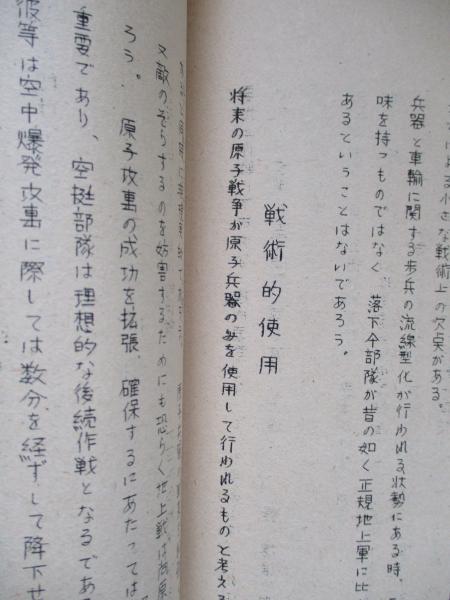 な小さな戦術上の欠点がある。
兵器と車輪に関する歩兵の流線型化が行われる状勢にある時、
味を持つものではなく、落下傘部隊が昔の如く正規地上軍に比
あるということはないであろう。
戦術的使用
将来の原子戦争が原子兵器のみを使用して行われるものと考える
又敵のそらするのを妨害するためにも恐らく地上戦は
ろう。原子攻撃の成功を拡張、確保するにあたっては
重要であり、空挺部隊は理想的な後続作戦となるであ
彼等は空中爆発攻撃に際しては数分を経ずして降下せ